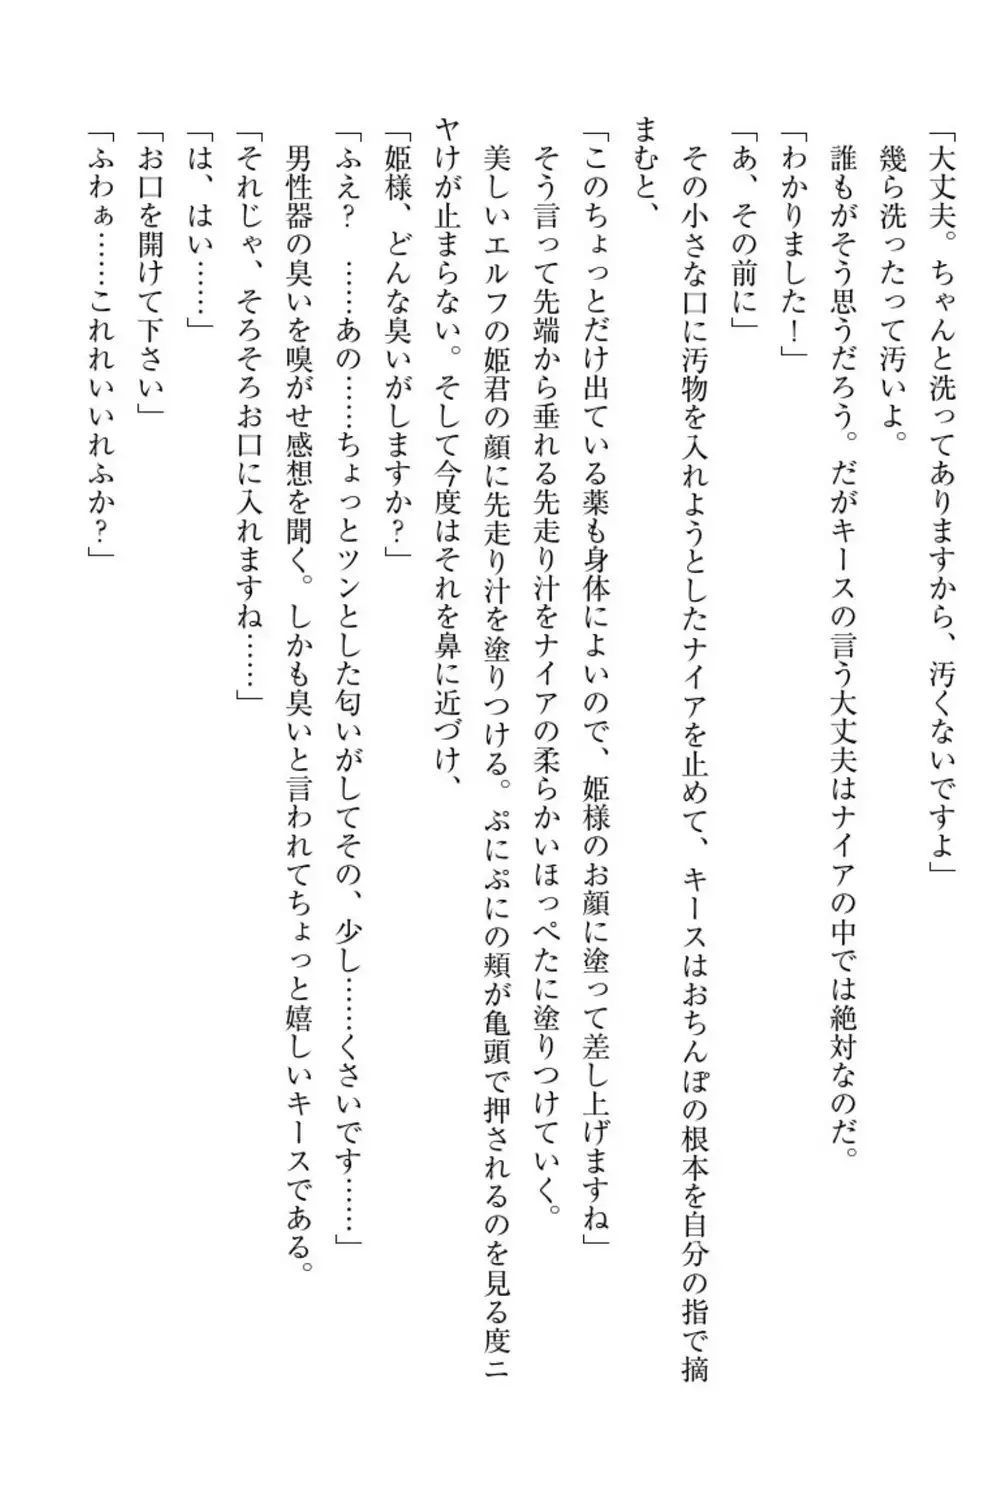 「大丈夫。ちゃんと洗ってありますから、汚くないですよ」
幾ら洗ったって汚いよ。
誰もがそう思うだろう。だがキースの言う大丈夫はナイアの中では絶対なのだ。
「わかりました！」
「あ、その前に」
その小さな口に汚物を入れようとしたナイアを止めて、キースはおちんぽの根本を自分の指で摘
まむと、
「このちょっとだけ出ている薬も身体によいので、姫様のお顔に塗って差し上げますね」
そう言って先端から垂れる先走り汁をナイアの柔らかいほっぺたに塗りつけていく。
美しいエルフの姫君の顔に先走り汁を塗りつける。ぷにぷにの頬が亀頭で押されるのを見る度ニ
ヤけが止まらない。そして今度はそれを鼻に近づけ、
「姫様、どんな臭いがしますか？」
「ふえ？　……あの……ちょっとツンとした匂いがしてその、少し……くさいです……」
男性器の臭いを嗅がせ感想を聞く。しかも臭いと言われてちょっと嬉しいキースである。
「それじゃ、そろそろお口に入れますね……」
「は、はい……」
「お口を開けて下さい」
「ふわぁ……これれいいれふか？」